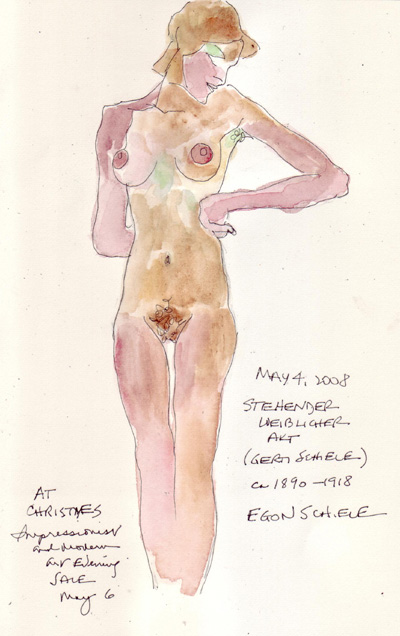 MAY 4, 2008
STEHENDER
WEIBLICHER
AKT
(GERTI SCHIELE)
ca 1890-1918
EGON SCHIELE
AT
CHRISTIES
Impressionist
and Modern
Art Evening
SALE
May 6